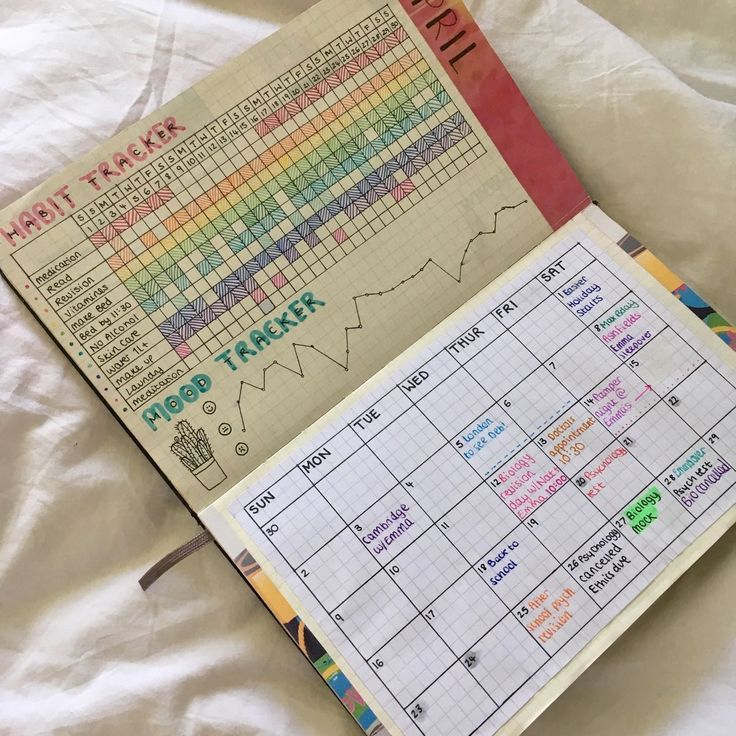 APRIL
HABIT TRACKER
S S M T W T F S S M T W T F S S M T W T F S S M T W T F S S
1 2 3 4 5 6 7 8 9 10 11 12 13 14 15 16 17 18 19 20 21 22 23 24 25 26 27 28 29 30
medication
Read
Revision
Vitamins
make Bed
Bed by 11:30
No Alcohol
Skin Care
Water 1L+
make up
Laundry
meditation
MOOD TRACKER
SUN MON TUE WED THUR FRI SAT
30
1 Easter
Holiday
Starts
2
3
Cambridge
w/Emma
4
5 London
to see Debi
6
7
8 Max Bday
Ashfields
Emma
Sleepover
9
10
12 Biology
revision
day w/Nat+
Emma 10:00
13 Doctors
appointment
10:30
14 Pamper
night @
Emmas
15
16
17
18 Back to
school
19
20 Psychology
test
21
22
23
24
25 After
school psych
revision
26 Psychology
cancelled
Ethics due
27
Biology
mock
28
Psych test
Bio cancelled
29